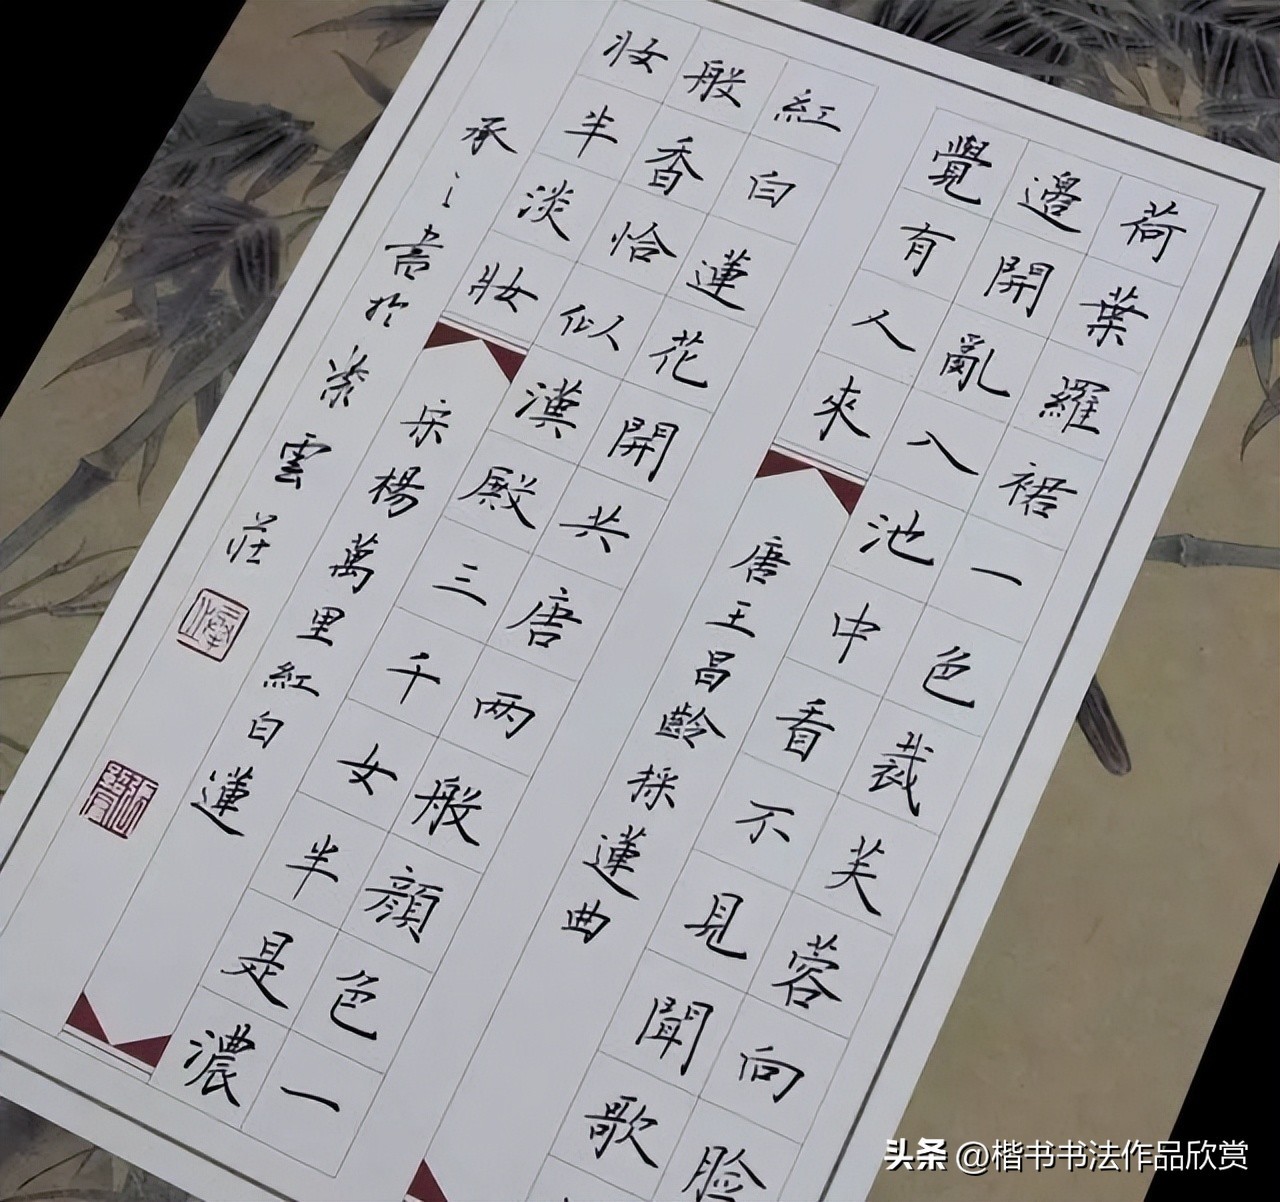 荷葉羅裙一色裁芙蓉向脸
邊開亂入池中看不見聞歌
覺有人來
唐王昌齡採蓮曲
紅白蓮花開共唐两般顔色一
般香恰似漢殿三千女半是濃
妆半淡妝
宋楊萬里紅白蓮
承之書於紫雲莊
头条 @楷书书法作品欣赏